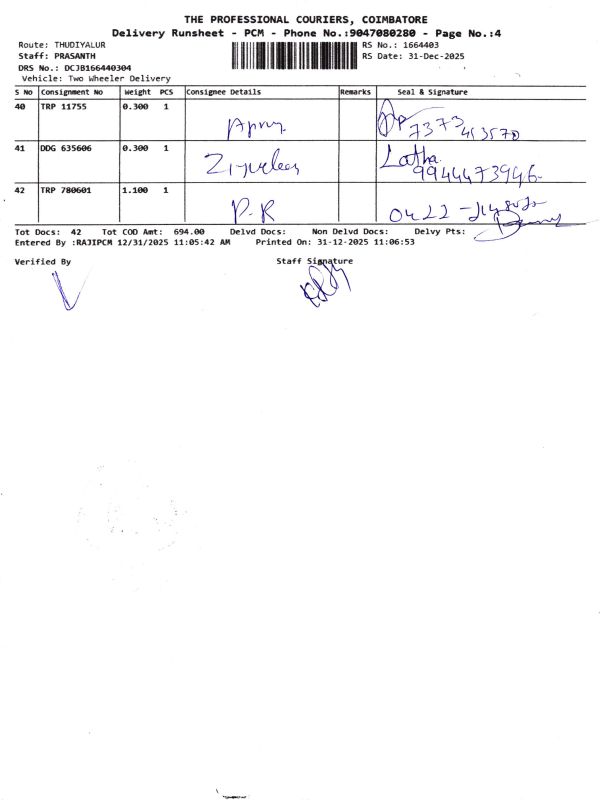 THE PROFESSIONAL COURIERS, COIMBATORE
Delivery Runsheet - PCM - Phone No.:9047080280 - Page No.:4
Route: THUDIYALUR
RS No.: 1664403
Staff: PRASANTH
RS Date: 31-Dec-2025
DRS No.: DCJB166440304
Vehicle: Two Wheeler Delivery
S No Consignment No Weight PCS Consignee Details Remarks Seal & Signature
40 TRP 11755 0.300 1
7373 413570
41 DDG 635606 0.300 1 Latha
9944473946
42 TRP 780601 1.100 1 P.R 0422
Tot Docs: 42 Tot COD Amt: 694.00 Delvd Docs: Non Delvd Docs: Delvy Pts:
Entered By :RAJIPCM 12/31/2025 11:05:42 AM Printed On: 31-12-2025 11:06:53
Verified By Staff Signature